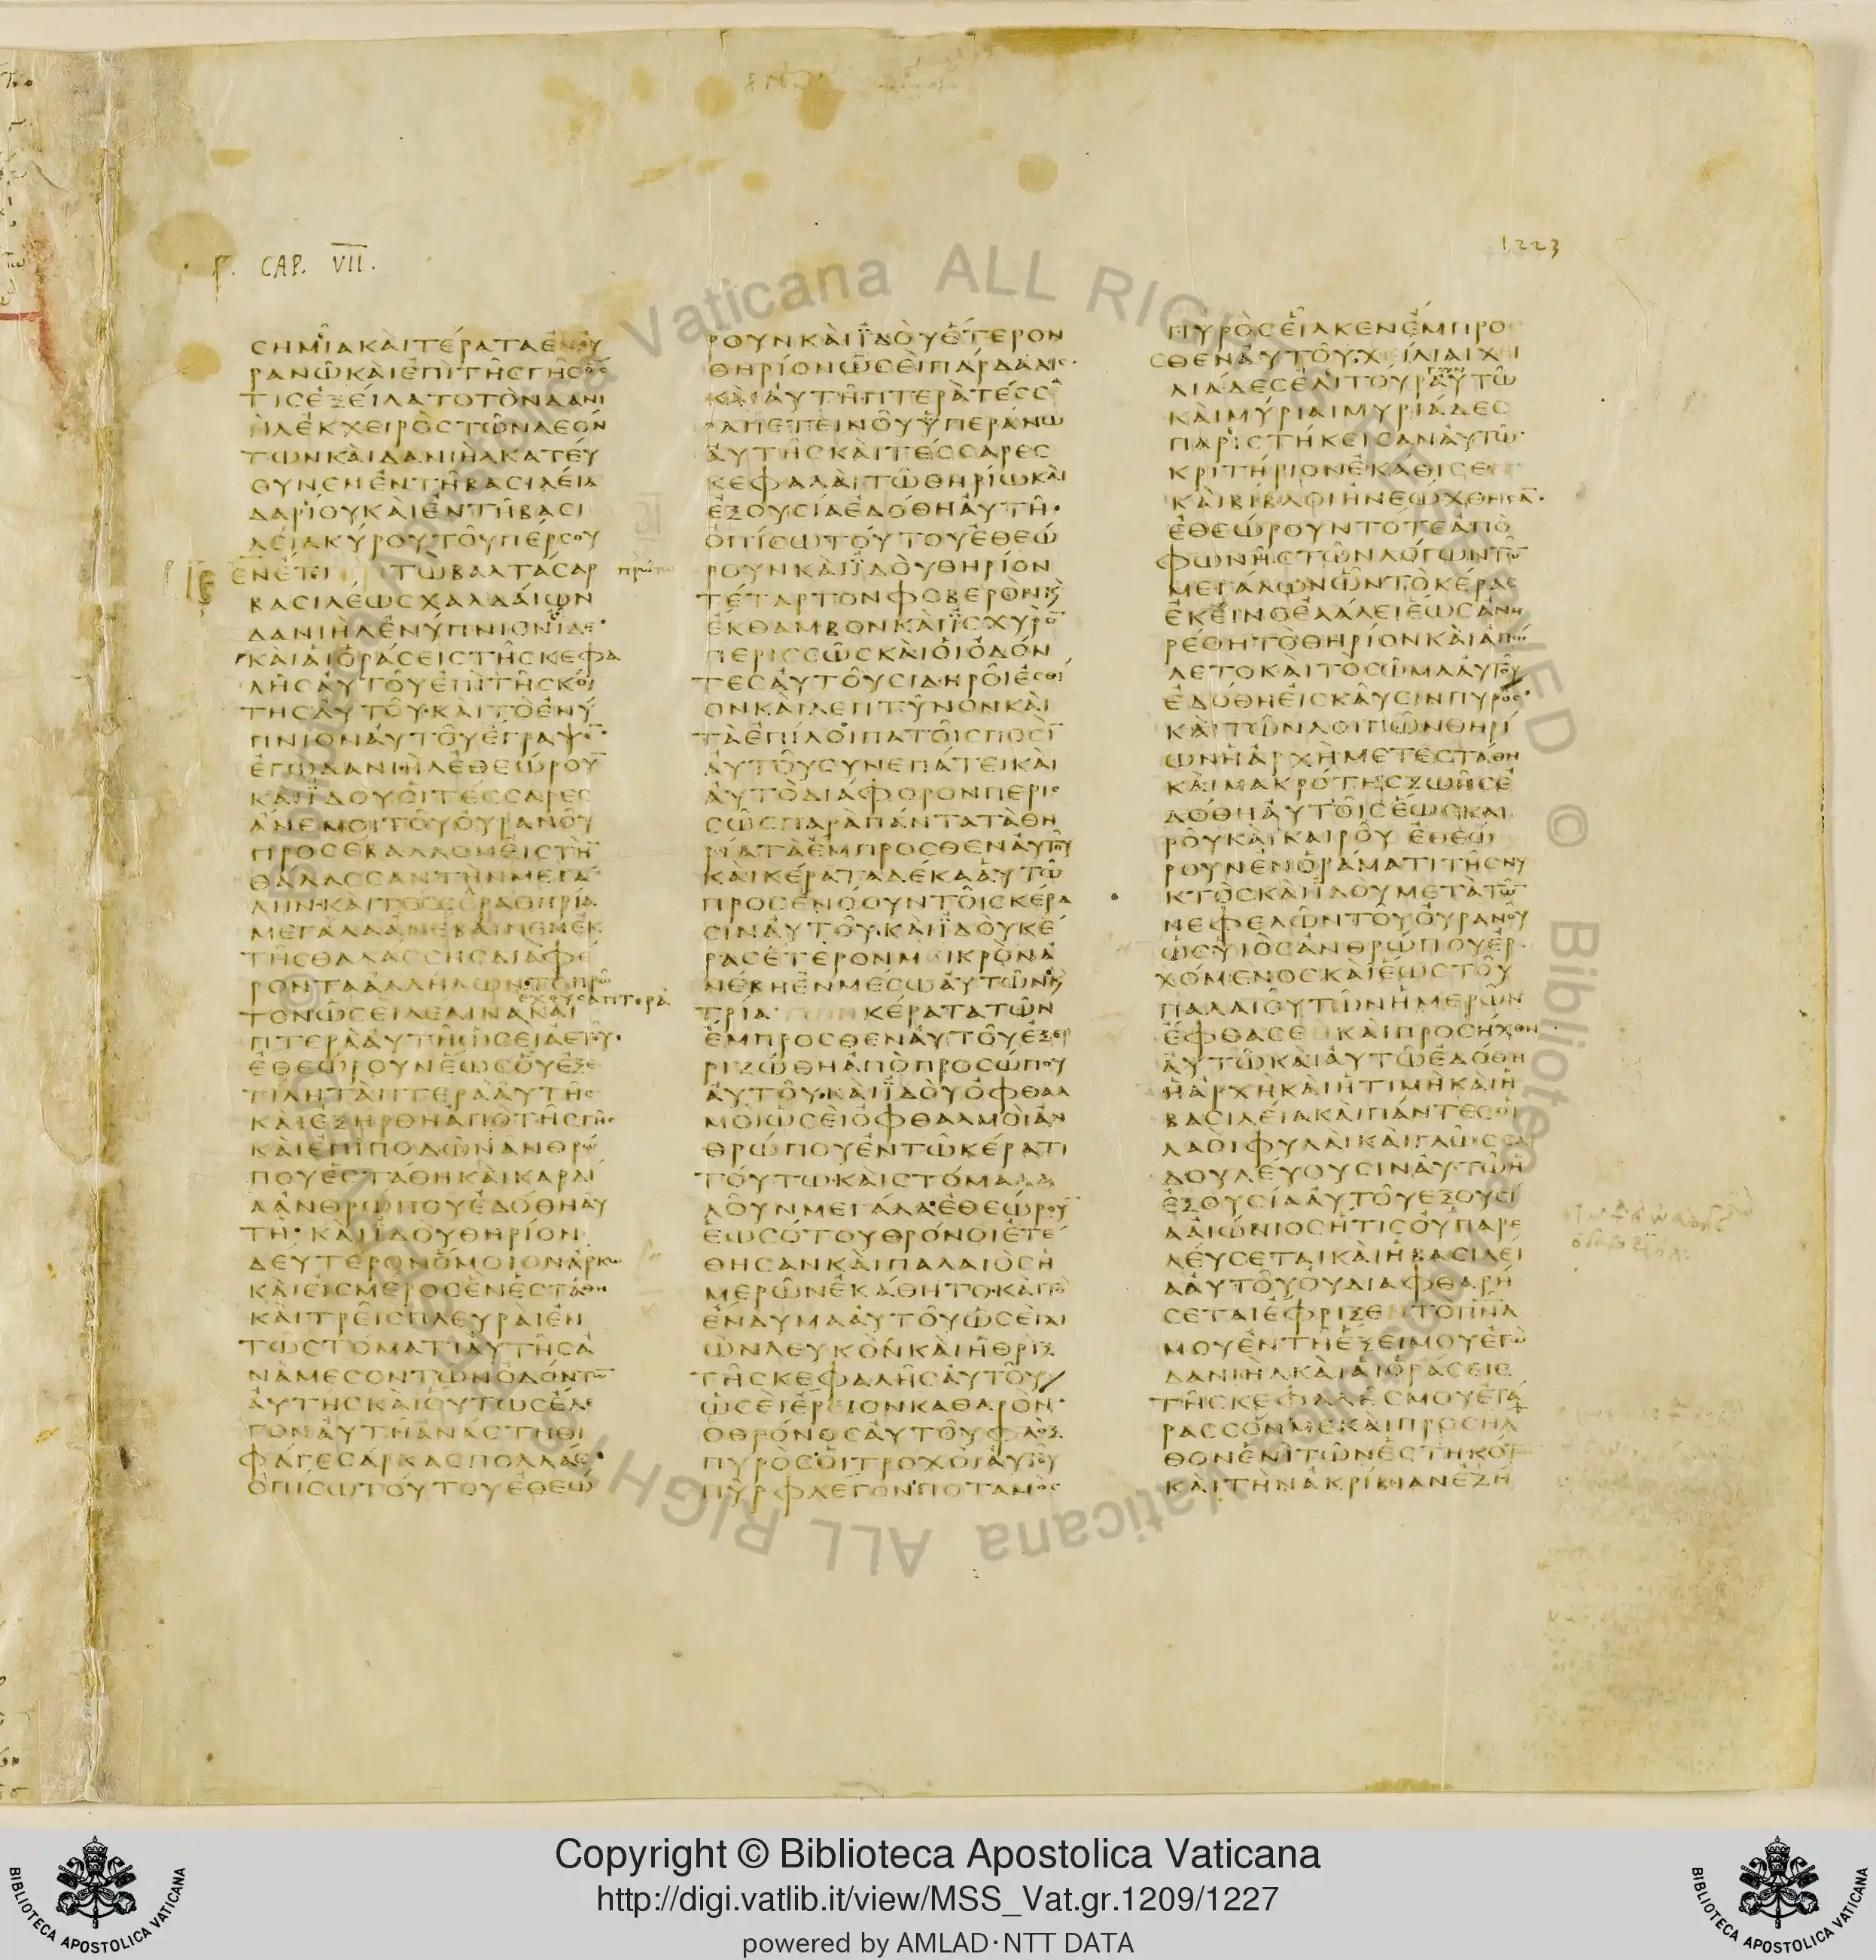 CAP. VII.
1223
ϹΗΜΙΑΚΑΙΤΕΡΑΤΑΕΝΟΥ
ΡΑΝΩΚΑΙΕΠΙΤΗϹΓΗϹΟϹ
ΤΙϹΕΞΕΙΛΑΤΟΤΟΝΔΑΝΙ
ΗΛΕΚΧΕΙΡΟϹΤΩΝΛΕΟΝ
ΤΩΝΚΑΙΔΑΝΙΗΛΚΑΤΕΥ
ΘΥΝΕΝΕΝΤΗΒΑϹΙΛΕΙΑ
ΔΑΡΙΟΥΚΑΙΕΝΤΗΒΑϹΙ
ΛΕΙΑΚΥΡΟΥΤΟΥΠΕΡϹΟΥ
ΕΝΕΤΙ ΤΩΒΑΛΤΑϹΑΡ πρώτω
ΒΑϹΙΛΕΩϹΧΑΛΔΑΙΩΝ
ΔΑΝΙΗΛΕΝΥΠΝΙΟΝΙΔΕ
ΚΑΙΑΙΟΡΑϹΕΙϹΤΗϹΚΕΦΑ
ΛΗϹΑΥΤΟΥΕΠΙΤΗϹΚΟΙ
ΤΗϹΑΥΤΟΥΚΑΙΤΟΕΝΥ
ΠΝΙΟΝΑΥΤΟΥΕΓΡΑΨΕ̅
ΕΓΩΔΑΝΙΗΛΕΘΕΩΡΟΥ̅
ΚΑΙΪΔΟΥΟΙΤΕϹϹΑΡΕϹ
ΑΝΕΜΟΙΤΟΥΟΥΡΑΝΟΥ
ΠΡΟϹΕΒΑΛΛΟΝΕΙϹΤΗ̅
ΘΑΛΑϹϹΑΝΤΗΝΜΕΓΑ
ΛΗΝΚΑΙΤΕϹϹΕΡΑΘΗΡΙΑ
ΜΕΓΑΛΑΑΝΕΒΑΙΝΕΝΕΚ
ΤΗϹΘΑΛΑϹϹΗϹΔΙΑΦΕ
ΡΟΝΤΑΑΛΛΗΛΩΝΤΟΠΡΩ
ΤΟΝΩϹΕΙΛΕΑΙΝΑΚΑΙ ἔχουσα πτερὰ
ΠΤΕΡΑΑΥΤΗΩϹΕΙΑΕΤΟΥ
ΕΘΕΩΡΟΥΝΕΩϹΟΥΕΞΕ
ΤΙΛΗΤΑΠΤΕΡΑΑΥΤΗϹ
ΚΑΙΕΞΗΡΘΗΑΠΟΤΗϹΓΗϹ
ΚΑΙΕΠΙΠΟΔΩΝΑΝΘΡΩ
ΠΟΥΕϹΤΑΘΗΚΑΙΚΑΡΔΙ
ΑΑΝΘΡΩΠΟΥΕΔΟΘΗΑΥ
ΤΗΚΑΙΪΔΟΥΘΗΡΙΟΝ
ΔΕΥΤΕΡΟΝΟΜΟΙΟΝΑΡΚΩ
ΚΑΙΕΙϹΜΕΡΟϹΕΝΕϹΤΑΘΗ
ΚΑΙΤΡΕΙϹΠΛΕΥΡΑΙΕΝ
ΤΩϹΤΟΜΑΤΙΑΥΤΗϹΑ
ΝΑΜΕϹΟΝΤΩΝΟΔΟΝΤΩ̅
ΑΥΤΗϹΚΑΙΟΥΤΩϹΕΛΕ
ΓΟΝΑΥΤΗΑΝΑϹΤΗΘΙ
ΦΑΓΕϹΑΡΚΑϹΠΟΛΛΑϹ
ΟΠΙϹΩΤΟΥΤΟΥΕΘΕΩ
ΡΟΥΝΚΑΙΪΔΟΥΕΤΕΡΟΝ
ΘΗΡΙΟΝΩϹΕΙΠΑΡΔΑΛΙϹ
ΚΑΙΑΥΤΗΠΤΕΡΑΤΕϹϹΕ
ΡΑΠΕΤΕΙΝΟΥΥΠΕΡΑΝΩ
ΑΥΤΗϹΚΑΙΤΕϹϹΑΡΕϹ
ΚΕΦΑΛΑΙΤΩΘΗΡΙΩΚΑΙ
ΕΞΟΥϹΙΑΕΔΟΘΗΑΥΤΗ
ΟΠΙϹΩΤΟΥΤΟΥΕΘΕΩ
ΡΟΥΝΚΑΙΪΔΟΥΘΗΡΙΟΝ
ΤΕΤΑΡΤΟΝΦΟΒΕΡΟΝϗ
ΕΚΘΑΜΒΟΝΚΑΙΪϹΧΥΡΟ̅
ΠΕΡΙϹϹΩϹΚΑΙΟΙΟΔΟΝ
ΤΕϹΑΥΤΟΥϹΙΔΗΡΟΙΕϹΘΙ
ΟΝΚΑΙΛΕΠΤΥΝΟΝΚΑΙ
ΤΑΕΠΙΛΟΙΠΑΤΟΙϹΠΟϹΙ̅
ΑΥΤΟΥϹΥΝΕΠΑΤΕΙΚΑΙ
ΑΥΤΟΔΙΑΦΟΡΟΝΠΕΡΙϹ
ϹΩϹΠΑΡΑΠΑΝΤΑΤΑΘΗ
ΡΙΑΤΑΕΜΠΡΟϹΘΕΝΑΥΤΟΥ
ΚΑΙΚΕΡΑΤΑΔΕΚΑΑΥΤΩ
ΠΡΟϹΕΝΟΟΥΝΤΟΙϹΚΕΡΑ
ϹΙΝΑΥΤΟΥΚΑΙΪΔΟΥΚΕ
ΡΑϹΕΤΕΡΟΝΜΕΙΚΡΟΝΑ
ΝΕΒΗΕΝΜΕϹΩΑΥΤΩΝϗ
ΤΡΙΑ ΚΕΡΑΤΑΤΩΝ
ΕΜΠΡΟϹΘΕΝΑΥΤΟΥΕΞΕΡ
ΡΙΖΩΘΗΑΠΟΠΡΟϹΩΠΟΥ
ΑΥΤΟΥΚΑΙΪΔΟΥΟΦΘΑΛ
ΜΟΙΩϹΕΙΟΦΘΑΛΜΟΙΑΝ
ΘΡΩΠΟΥΕΝΤΩΚΕΡΑΤΙ
ΤΟΥΤΩΚΑΙϹΤΟΜΑΛΑ
ΛΟΥΝΜΕΓΑΛΑΕΘΕΩΡΟΥ̅
ΕΩϹΟΤΟΥΘΡΟΝΟΙΕΤΕ
ΘΗϹΑΝΚΑΙΠΑΛΑΙΟϹΗ
ΜΕΡΩΝΕΚΑΘΗΤΟΚΑΙΤΟ
ΕΝΔΥΜΑΑΥΤΟΥΩϹΕΙΧΙ
ΩΝΛΕΥΚΟΝΚΑΙΗΘΡΙΞ
ΤΗϹΚΕΦΑΛΗϹΑΥΤΟΥ
ΩϹΕΙΕΡΙΟΝΚΑΘΑΡΟΝ
ΟΘΡΟΝΟϹΑΥΤΟΥΦΛΟΞ
ΠΥΡΟϹΟΙΤΡΟΧΟΙΑΥΤΟΥ
ΠΥΡΦΛΕΓΟΝΠΟΤΑΜΟϹ
ΠΥΡΟϹΕΙΛΚΕΝΕΜΠΡΟ
ϹΘΕΝΑΥΤΟΥΧΕΙΛΙΑΙΧΕΙ
ΛΙΑΔΕϹΕΛΙΤΟΥΡΓΟΥΝΑΥΤΩ
ΚΑΙΜΥΡΙΑΙΜΥΡΙΑΔΕϹ
ΠΑΡΙϹΤΗΚΕΙϹΑΝΑΥΤΩ
ΚΡΙΤΗΡΙΟΝΕΚΑΘΙϹΕ
ΚΑΙΒΙΒΛΟΙΗΝΕΩΧΘΗϹΑ̅
ΕΘΕΩΡΟΥΝΤΟΤΕΑΠΟ
ΦΩΝΗϹΤΩΝΛΟΓΩΝΤΩ̅
ΜΕΓΑΛΩΝΩΝΤΟΚΕΡΑϹ
ΕΚΕΙΝΟΕΛΑΛΕΙΕΩϹΑΝΗ
ΡΕΘΗΤΟΘΗΡΙΟΝΚΑΙΑΠΩ
ΛΕΤΟΚΑΙΤΟϹΩΜΑΑΥΤΟΥ
ΕΔΟΘΗΕΙϹΚΑΥϹΙΝΠΥΡΟϹ
ΚΑΙΤΩΝΛΟΙΠΩΝΘΗΡΙ
ΩΝΗΑΡΧΗΜΕΤΕϹΤΑΘΗ
ΚΑΙΜΑΚΡΟΤΗϹΖΩΗϹΕ
ΔΟΘΗΑΥΤΟΙϹΕΩϹΚΑΙ
ΡΟΥΚΑΙΚΑΙΡΟΥΕΘΕΩ
ΡΟΥΝΕΝΟΡΑΜΑΤΙΤΗϹΝΥ
ΚΤΟϹΚΑΙΪΔΟΥΜΕΤΑΤΩ̅
ΝΕΦΕΛΩΝΤΟΥΟΥΡΑΝΟΥ
ΩϹΥΙΟϹΑΝΘΡΩΠΟΥΕΡ
ΧΟΜΕΝΟϹΚΑΙΕΩϹΤΟΥ
ΠΑΛΑΙΟΥΤΩΝΗΜΕΡΩΝ
ΕΦΘΑϹΕ ΚΑΙΠΡΟϹΗΧΘΗ
ΑΥΤΩΚΑΙΑΥΤΩΕΔΟΘΗ
ΗΑΡΧΗΚΑΙΗΤΙΜΗΚΑΙΗ
ΒΑϹΙΛΕΙΑΚΑΙΠΑΝΤΕϹΟΙ
ΛΑΟΙΦΥΛΑΙΚΑΙΓΛΩϹϹΑΙ
ΔΟΥΛΕΥΟΥϹΙΝΑΥΤΩΗ
ΕΞΟΥϹΙΑΑΥΤΟΥΕΞΟΥϹΙ
ΑΑΙΩΝΙΟϹΗΤΙϹΟΥΠΑΡΕ
ΛΕΥϹΕΤΑΙΚΑΙΗΒΑϹΙΛΕΙ
ΑΑΥΤΟΥΟΥΔΙΑΦΘΑΡΗ
ϹΕΤΑΙΕΦΡΙΞΕ ΤΟΠΝ̅Α
ΜΟΥΕΝΤΗΕΞΕΙΜΟΥΕΓΩ
ΔΑΝΙΗΛΚΑΙΑΙΟΡΑϹΕΙϹ
ΤΗϹΚΕΦΑΛΗϹΜΟΥΕΤΑ
ΡΑϹϹΟΝΜΕΚΑΙΠΡΟϹΗΛ
ΘΟΝΕΝΙΤΩΝΕϹΤΗΚΟΤ
ΚΑΙΤΗΝΑΚΡΙΒΙΑΝΕΖΗ
Copyright © Biblioteca Apostolica Vaticana
http://digi.vatlib.it/view/MSS_Vat.gr.1209/1227
powered by AMLAD·NTT DATA